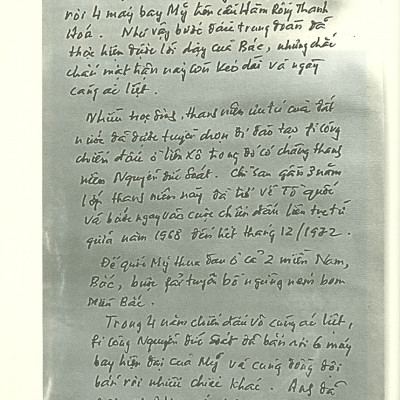 rơi 4 máy bay Mỹ trên cầu Hàm Rồng Thanh
Hoá. Như vậy bước đầu trung đoàn đã
thực hiện được lời dạy của Bác, nhưng chiến
chấn mặt trận này còn kéo dài và ngày
càng ác liệt.
Nhiều học sinh, thanh niên ưu tú của đất
nước đã được tuyển chọn đi đào tạo fi công
chiến đấu ở liên xô trong đó có chàng thanh
niên Nguyễn Đức Soát. Chỉ sau gần 3 năm
lớp thanh niên này đã trở về Tổ quốc
và bước ngay vào cuộc chiến đấu liên tục từ
giữa năm 1968 đến hết tháng 12/1972.
Đế quốc Mỹ thua đau ở cả 2 miền Nam,
Bắc, buộc fải tuyên bố ngừng ném bom
Miền Bắc.
Trong 4 năm chiến đấu vô cùng ác liệt,
fi công Nguyễn Đức Soát đã bắn rơi 6 máy
bay hiện đại của Mỹ và cùng đồng đội
bắn rơi nhiều chiếc khác. Anh đã